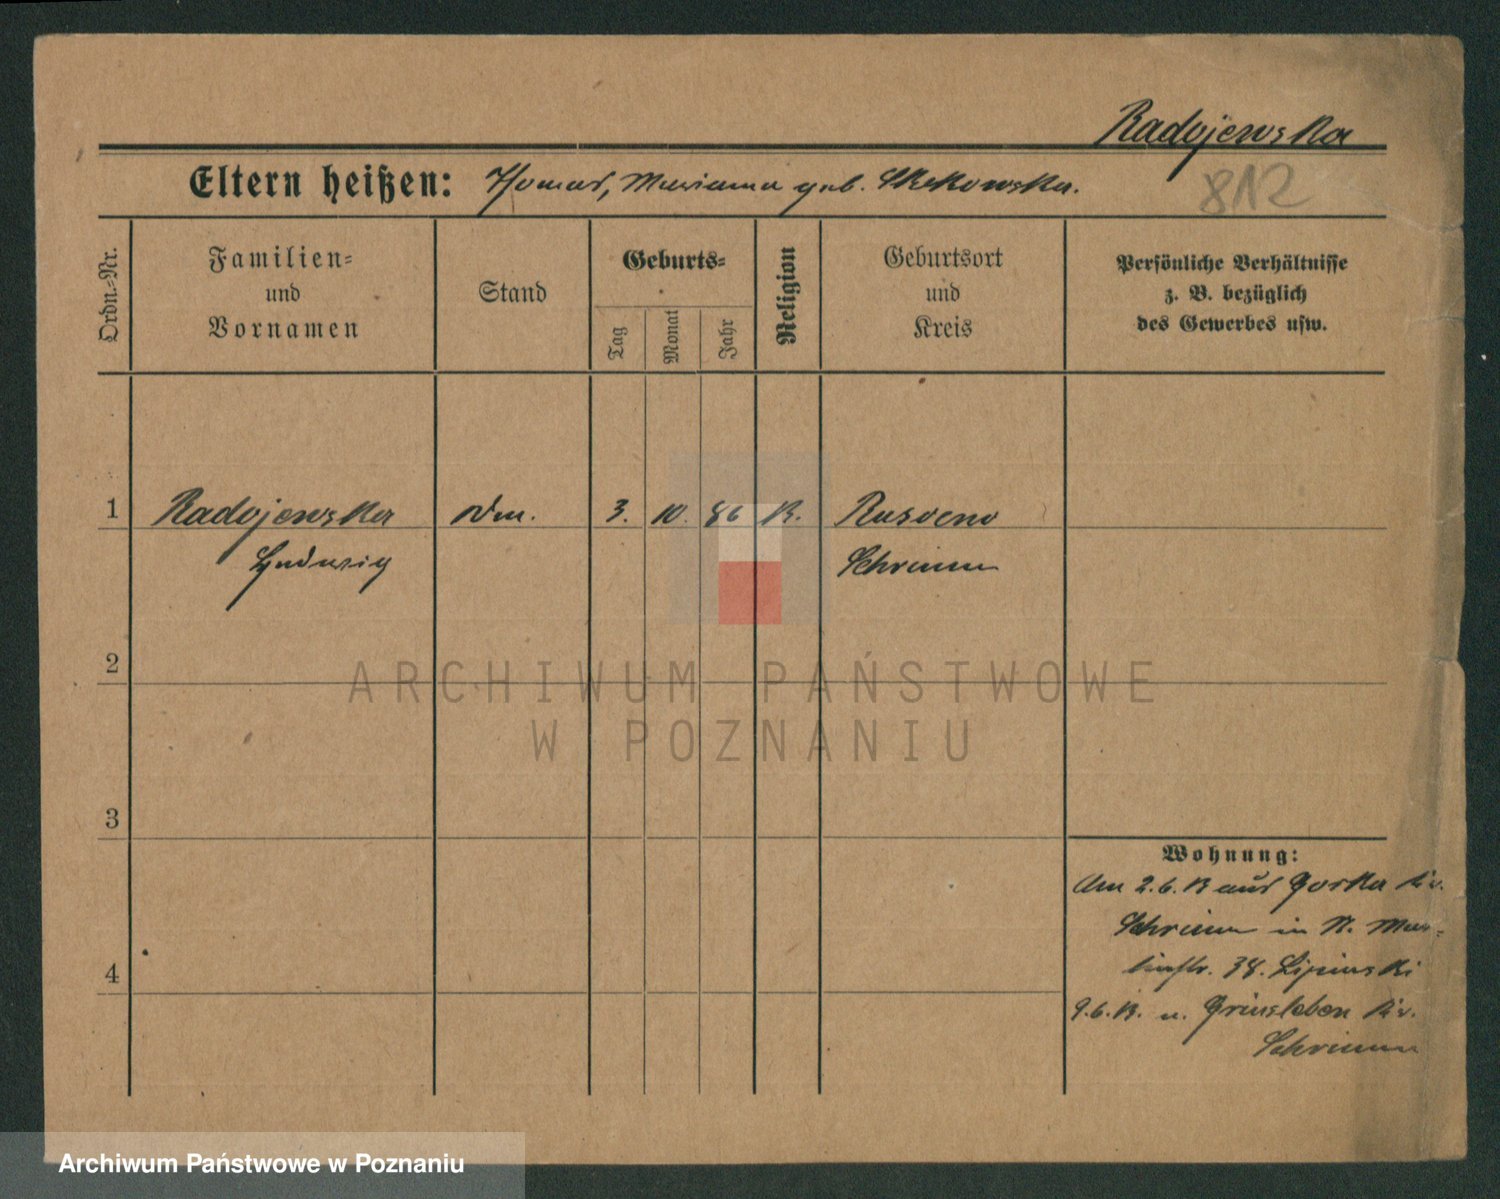 Radojewska
Eltern heißen: Tomas, Marianna geb. Skrkowska.
812
Ordn.-Nr.
Familien-
und
Vornamen
Stand
Geburts-
Tag
Monat
Jahr
Religion
Geburtsort
und
Kreis
Persönliche Verhältnisse
z. B. bezüglich
des Gewerbes usw.
1 Radojewska Dm. 3. 10. 86 K. Rusoeno
Hedwig Schrimm
2
3
4
Wohnung:
Am 2.6.13 aus Gorka Kr.
Schrimm in N. Mar-
tinstr. 38. Lipinski
9.6.13. n. Grinsleben Kr.
Schrimm
ARCHIWUM PAŃSTWOWE
W POZNANIU
Archiwum Państwowe w Poznaniu